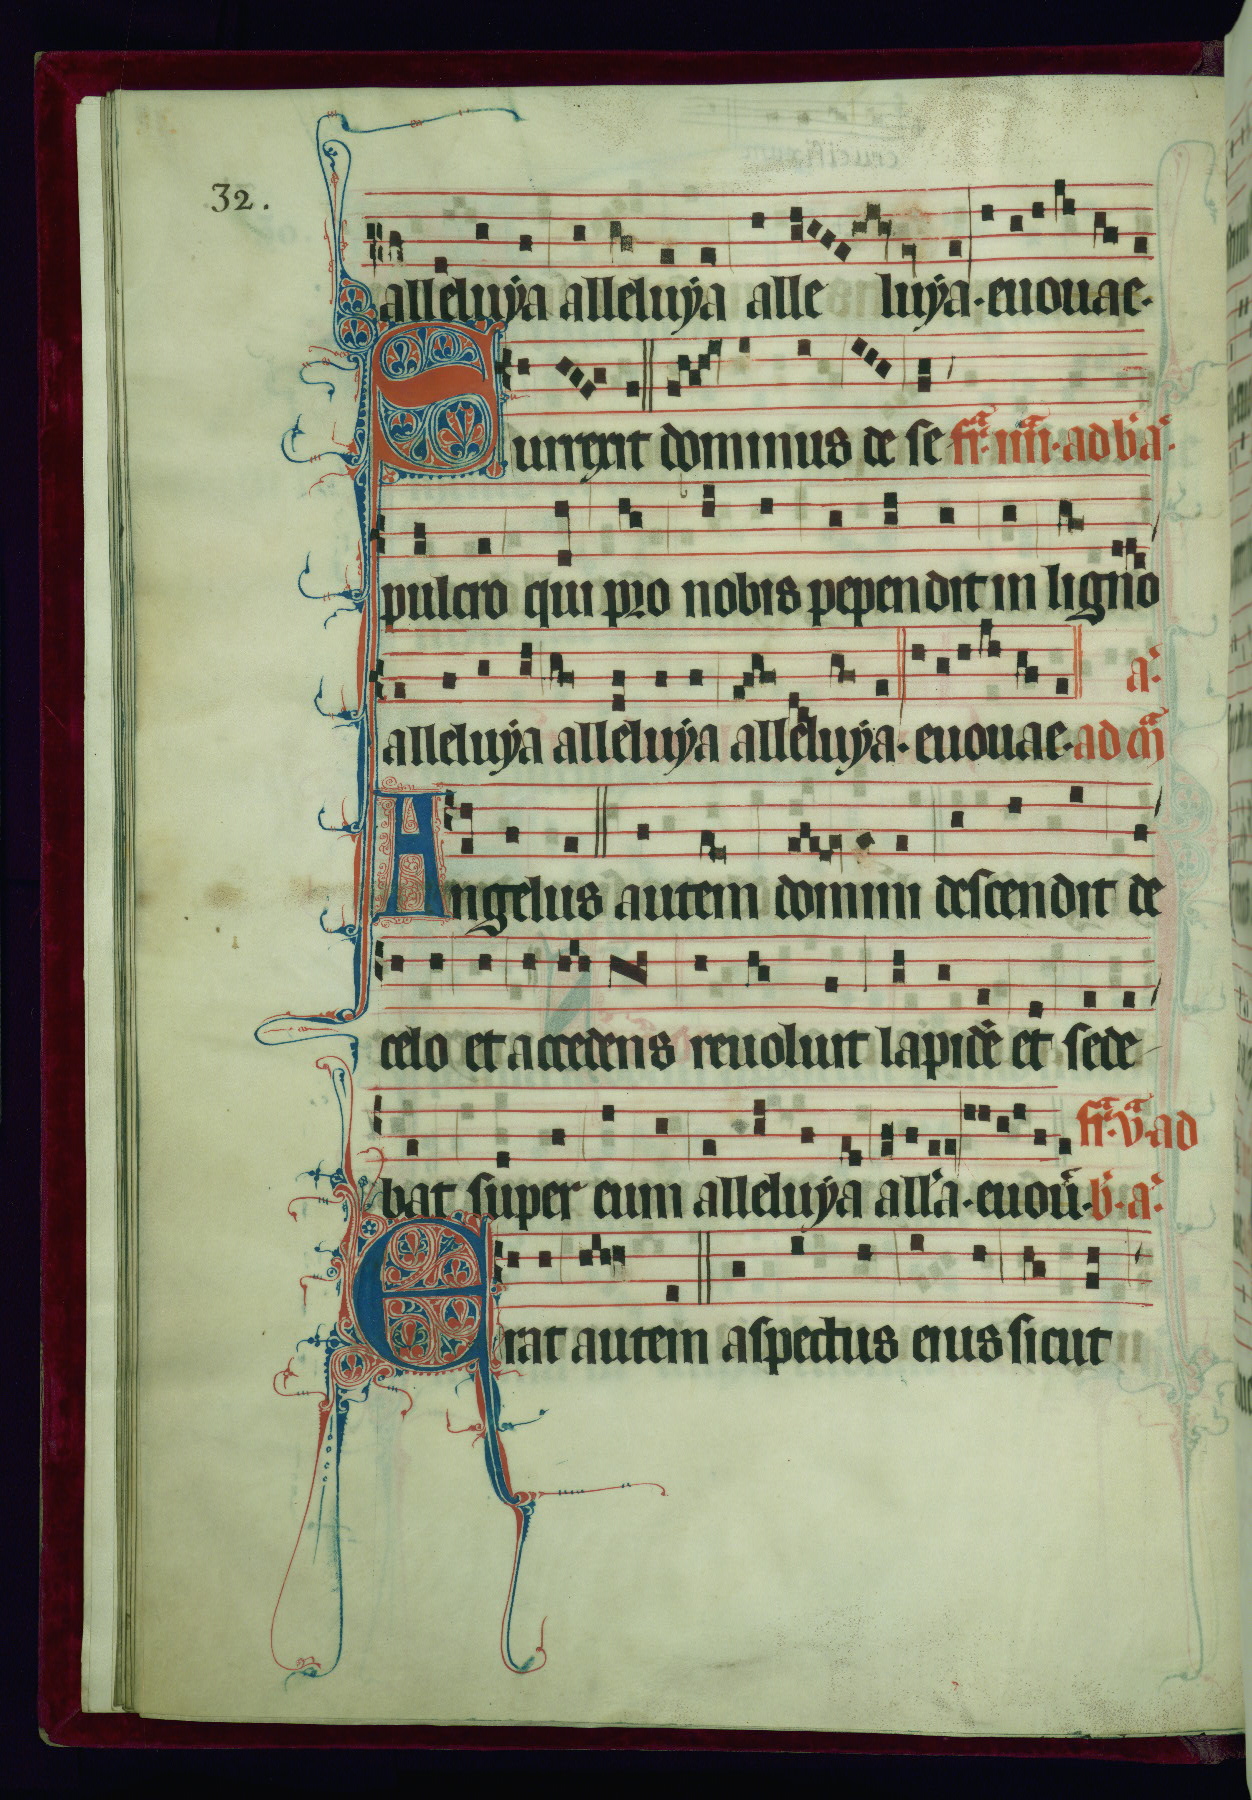 32.
alleluÿa alleluÿa alle luÿa·euouae·
Surrexit dominus de se fr̄a·iiii·ad bā·a·
pulcro qui pro nobis pependit in ligno
a·
alleluÿa alleluÿa alleluÿa·euouae·ad m̄
Angelus autem domini descendit de
celo et accedens reuoluit lapidē et sede
fr̄a·v̄·ad
bat super eum alleluÿa all'a·euou·b̄·a·
Erat autem aspectus eius sicut